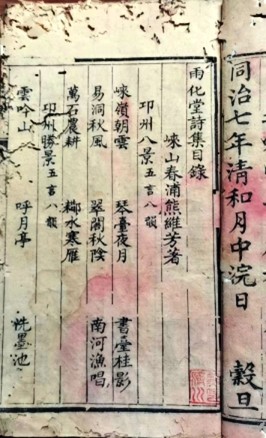 同治七年清和月中浣日 穀旦
雨化堂詩集目錄
崍山春浦熊維芳著
邛州八景五言八韻
崍嶺朝雲 琴臺夜月 書臺桂影
易洞秋風 翠閣秋陰 南河漁唱
萬石農耕 水寒雁
邛州勝景五言八韻
雲吟山 呼月亭 洗墨池